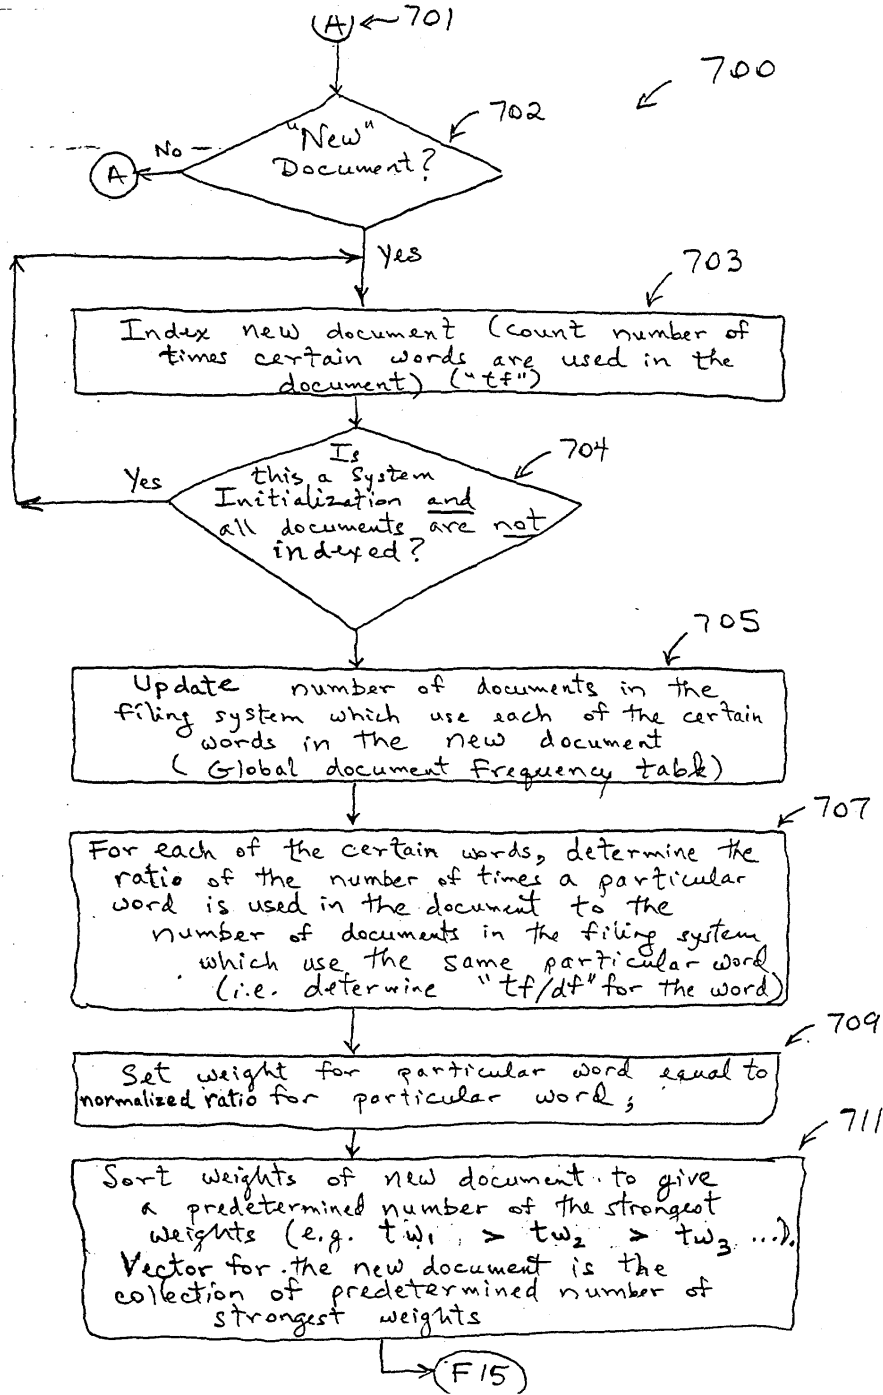 A 701
700
702
"New"
Document?
No
A
Yes
703
Index new document (count number of
times certain words are used in the
document) ("tf")
704
Is
this a System
Initialization and
all documents are not
indexed?
Yes
705
Update number of documents in the
filing system which use each of the certain
words in the new document
(Global document frequency table)
707
For each of the certain words, determine the
ratio of the number of times a particular
word is used in the document to the
number of documents in the filing system
which use the same particular word
(i.e. determine "tf/df" for the word)
709
Set weight for particular word equal to
normalized ratio for particular word;
711
Sort weights of new document to give
a predetermined number of the strongest
weights (e.g. tw1 > tw2 > tw3 ...).
Vector for the new document is the
collection of predetermined number of
strongest weights
F15